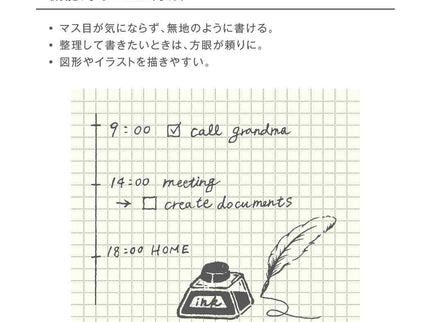 ・マス目が気にならず、無地のように書ける。
・整理して書きたいときは、方眼が頼りに。
・図形やイラストを描きやすい。
9:00 ☑ call grandma
14:00 meeting
→ ☐ create documents
18:00 HOME
ink